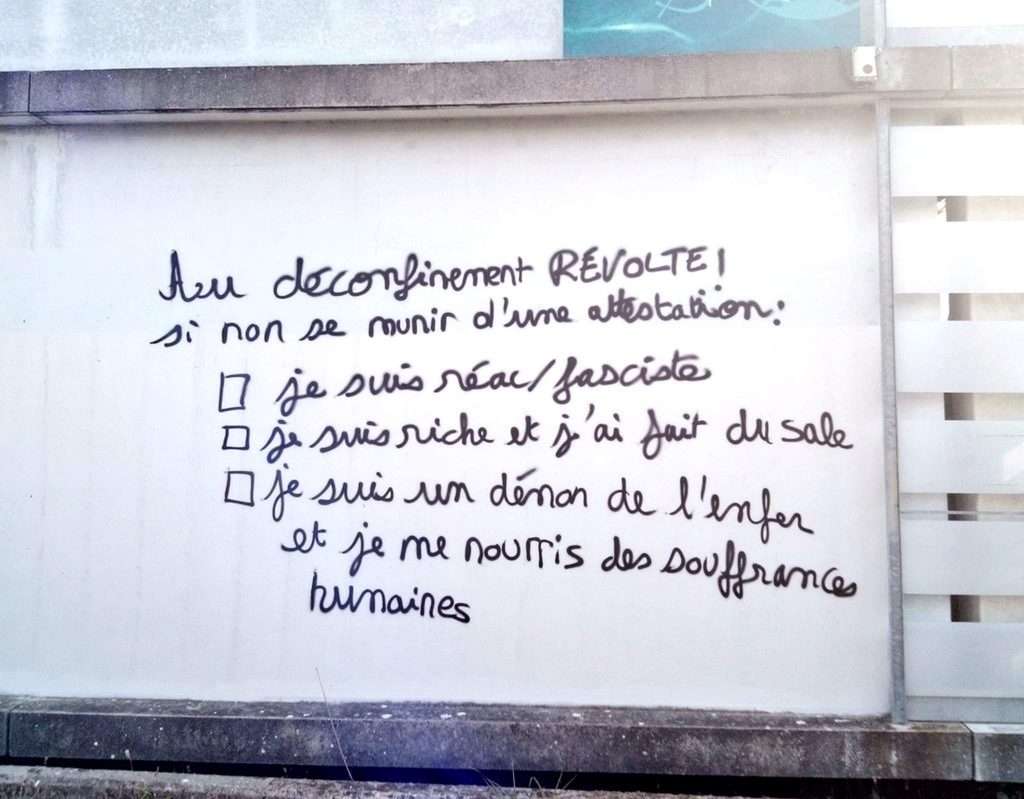 Au déconfinement RÉVOLTE!
si non se munir d'une attestation:
je suis réac/fasciste
je suis riche et j'ai fait du sale
je suis un démon de l'enfer
et je me nourris des souffrances
humaines